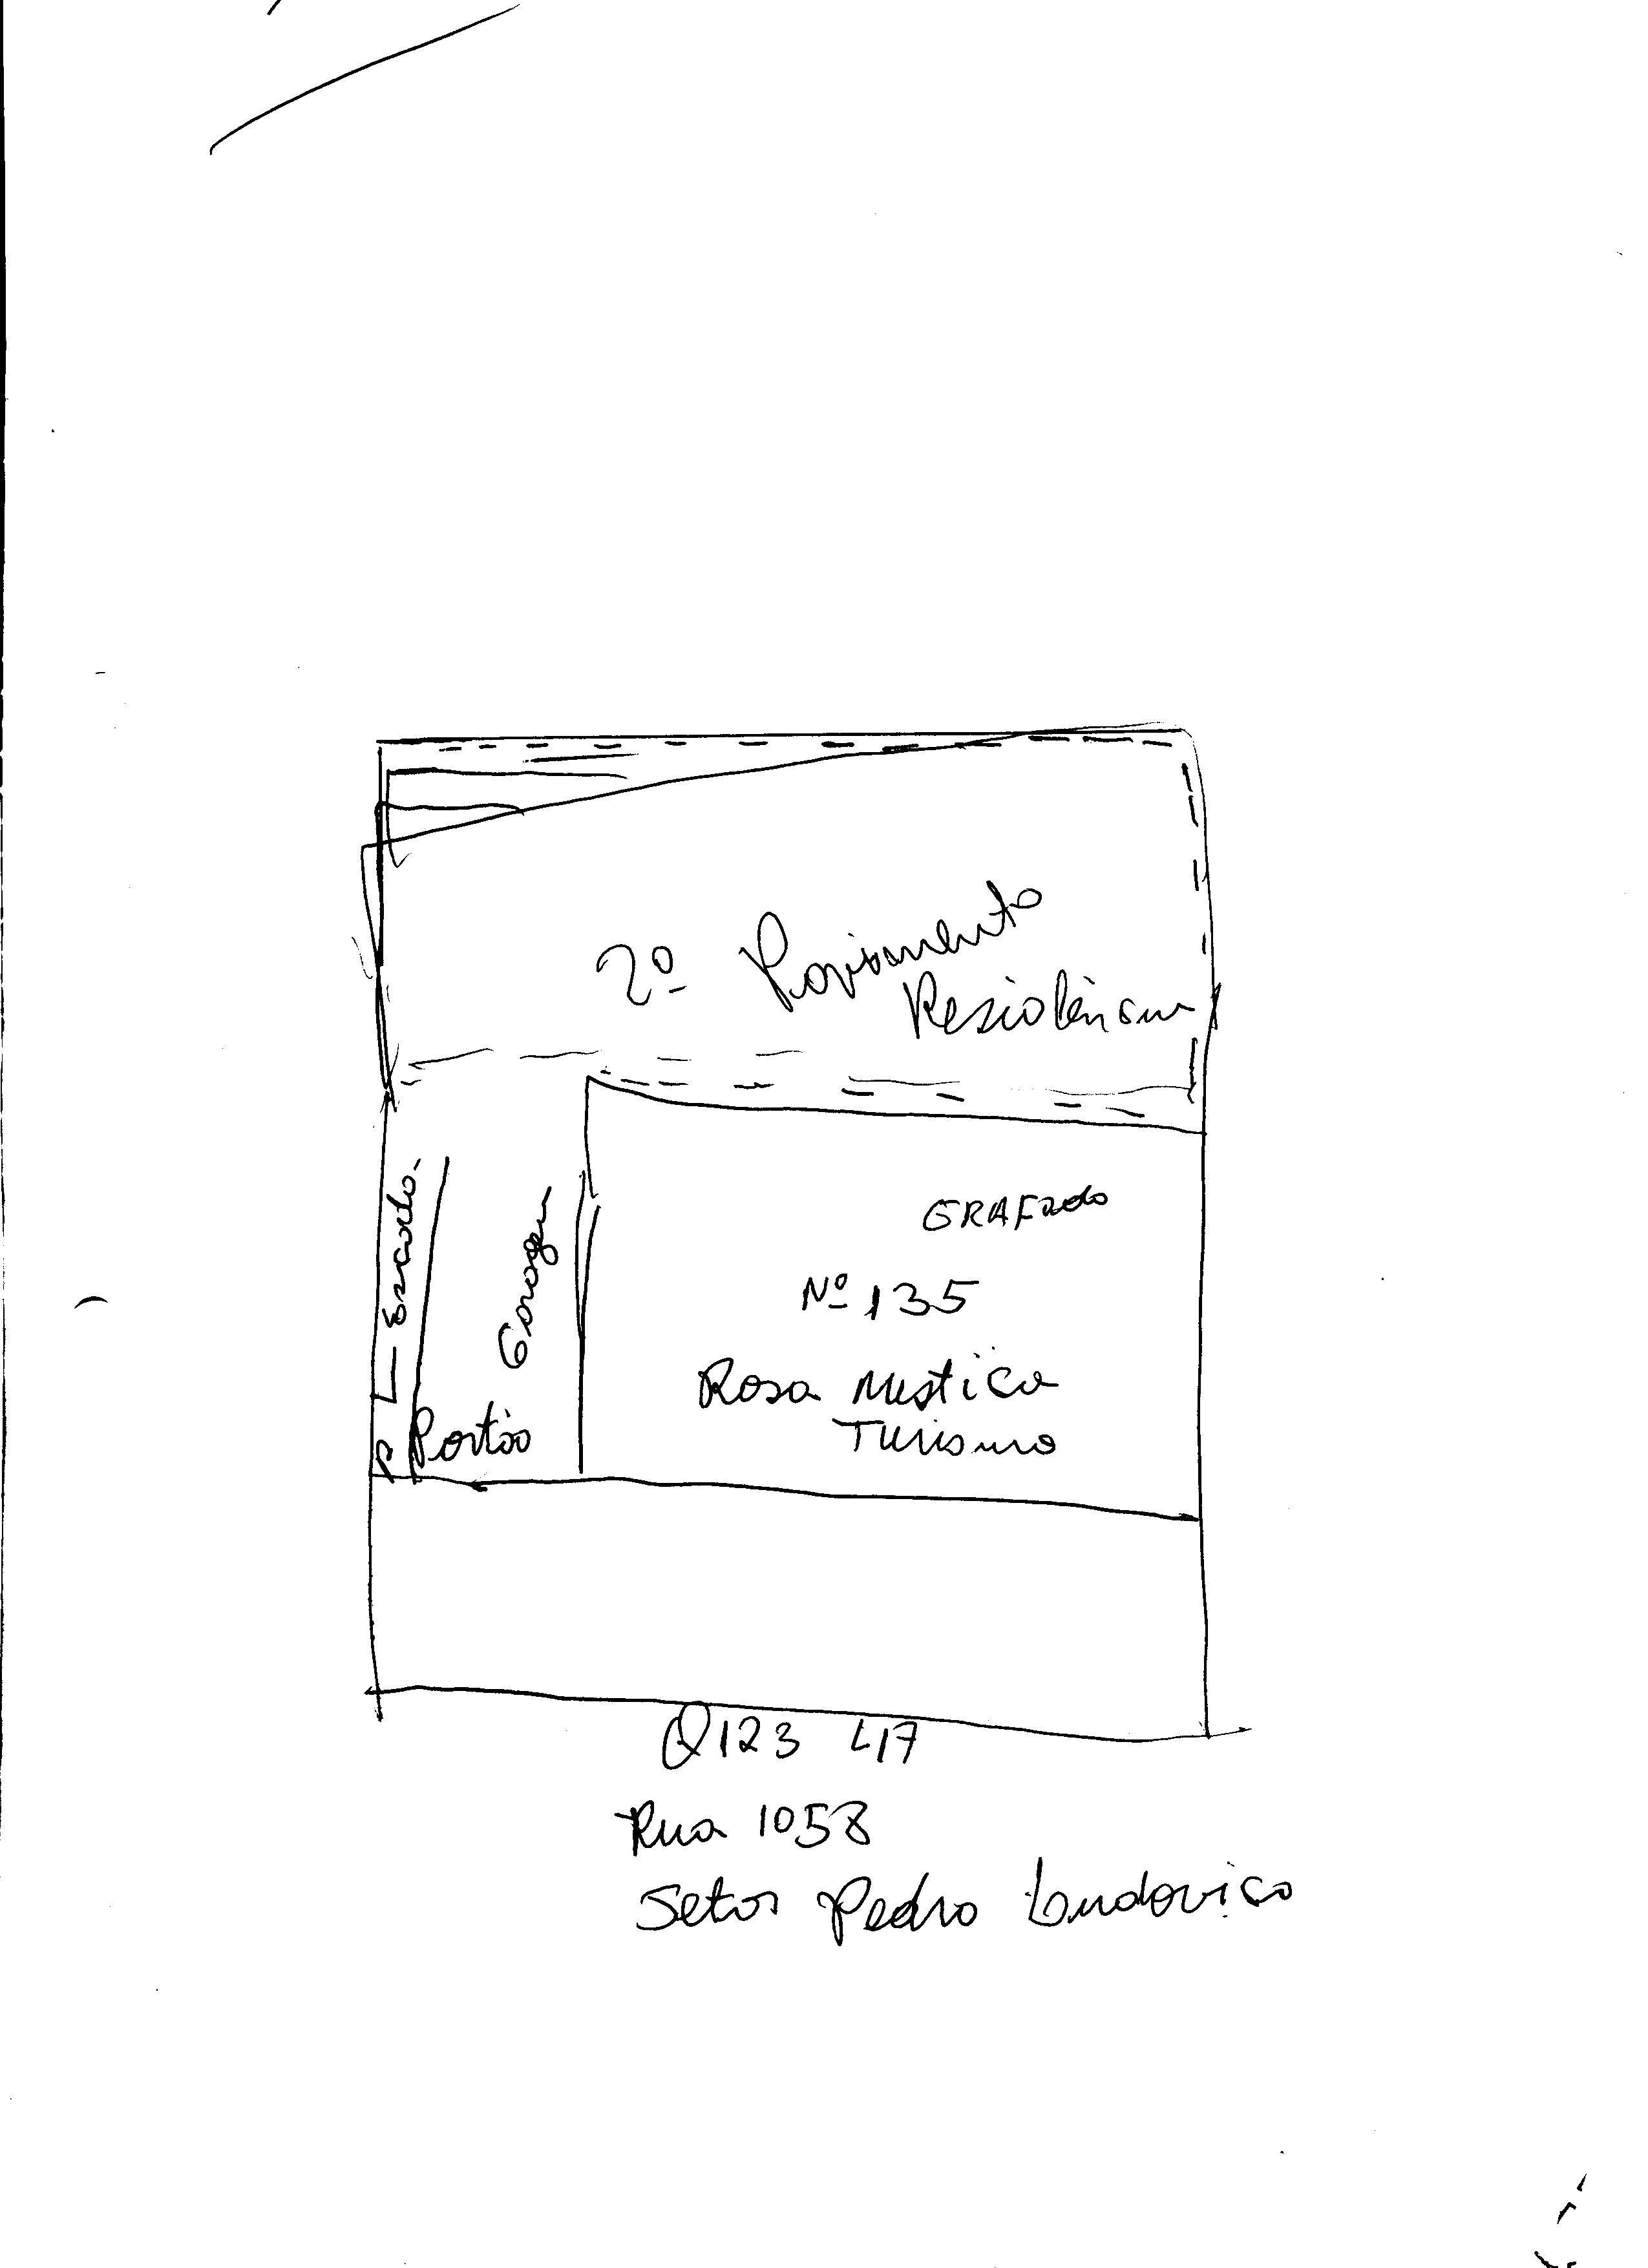 2º Pavimento
Residência
Escada
Garagem
GRAFADO
Nº 135
Rosa Mistica
Turismo
P
Portão
Q123 L17
Rua 1058
Setor Pedro Ludovico